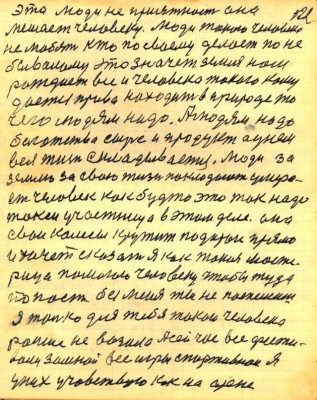 121
Эта людям не приятност она
мешает человеку. Люди такого человека
не любят кто по своему делает по не
бывалому это значет земля наш
рождает все и человека такого кому
дается права находит в природе то
чего людям надо. А людям надо
богатства сырье и продукт а у ней
вся жизн складывается. Люди за
землю за свою жизн покладают умира-
ет человек как будто это так надо
тоже и участница в этом деле. она
свои колеса крутит подарок прямо
и хочет сказат я как такая масте-
рица помогаю человеку чтобы туда
попаст без меня ты не попешиш
я только для тебя такой человека
раньше не возила А сейчас все
за мной все игры спортивная Я
у них участвую как на арене